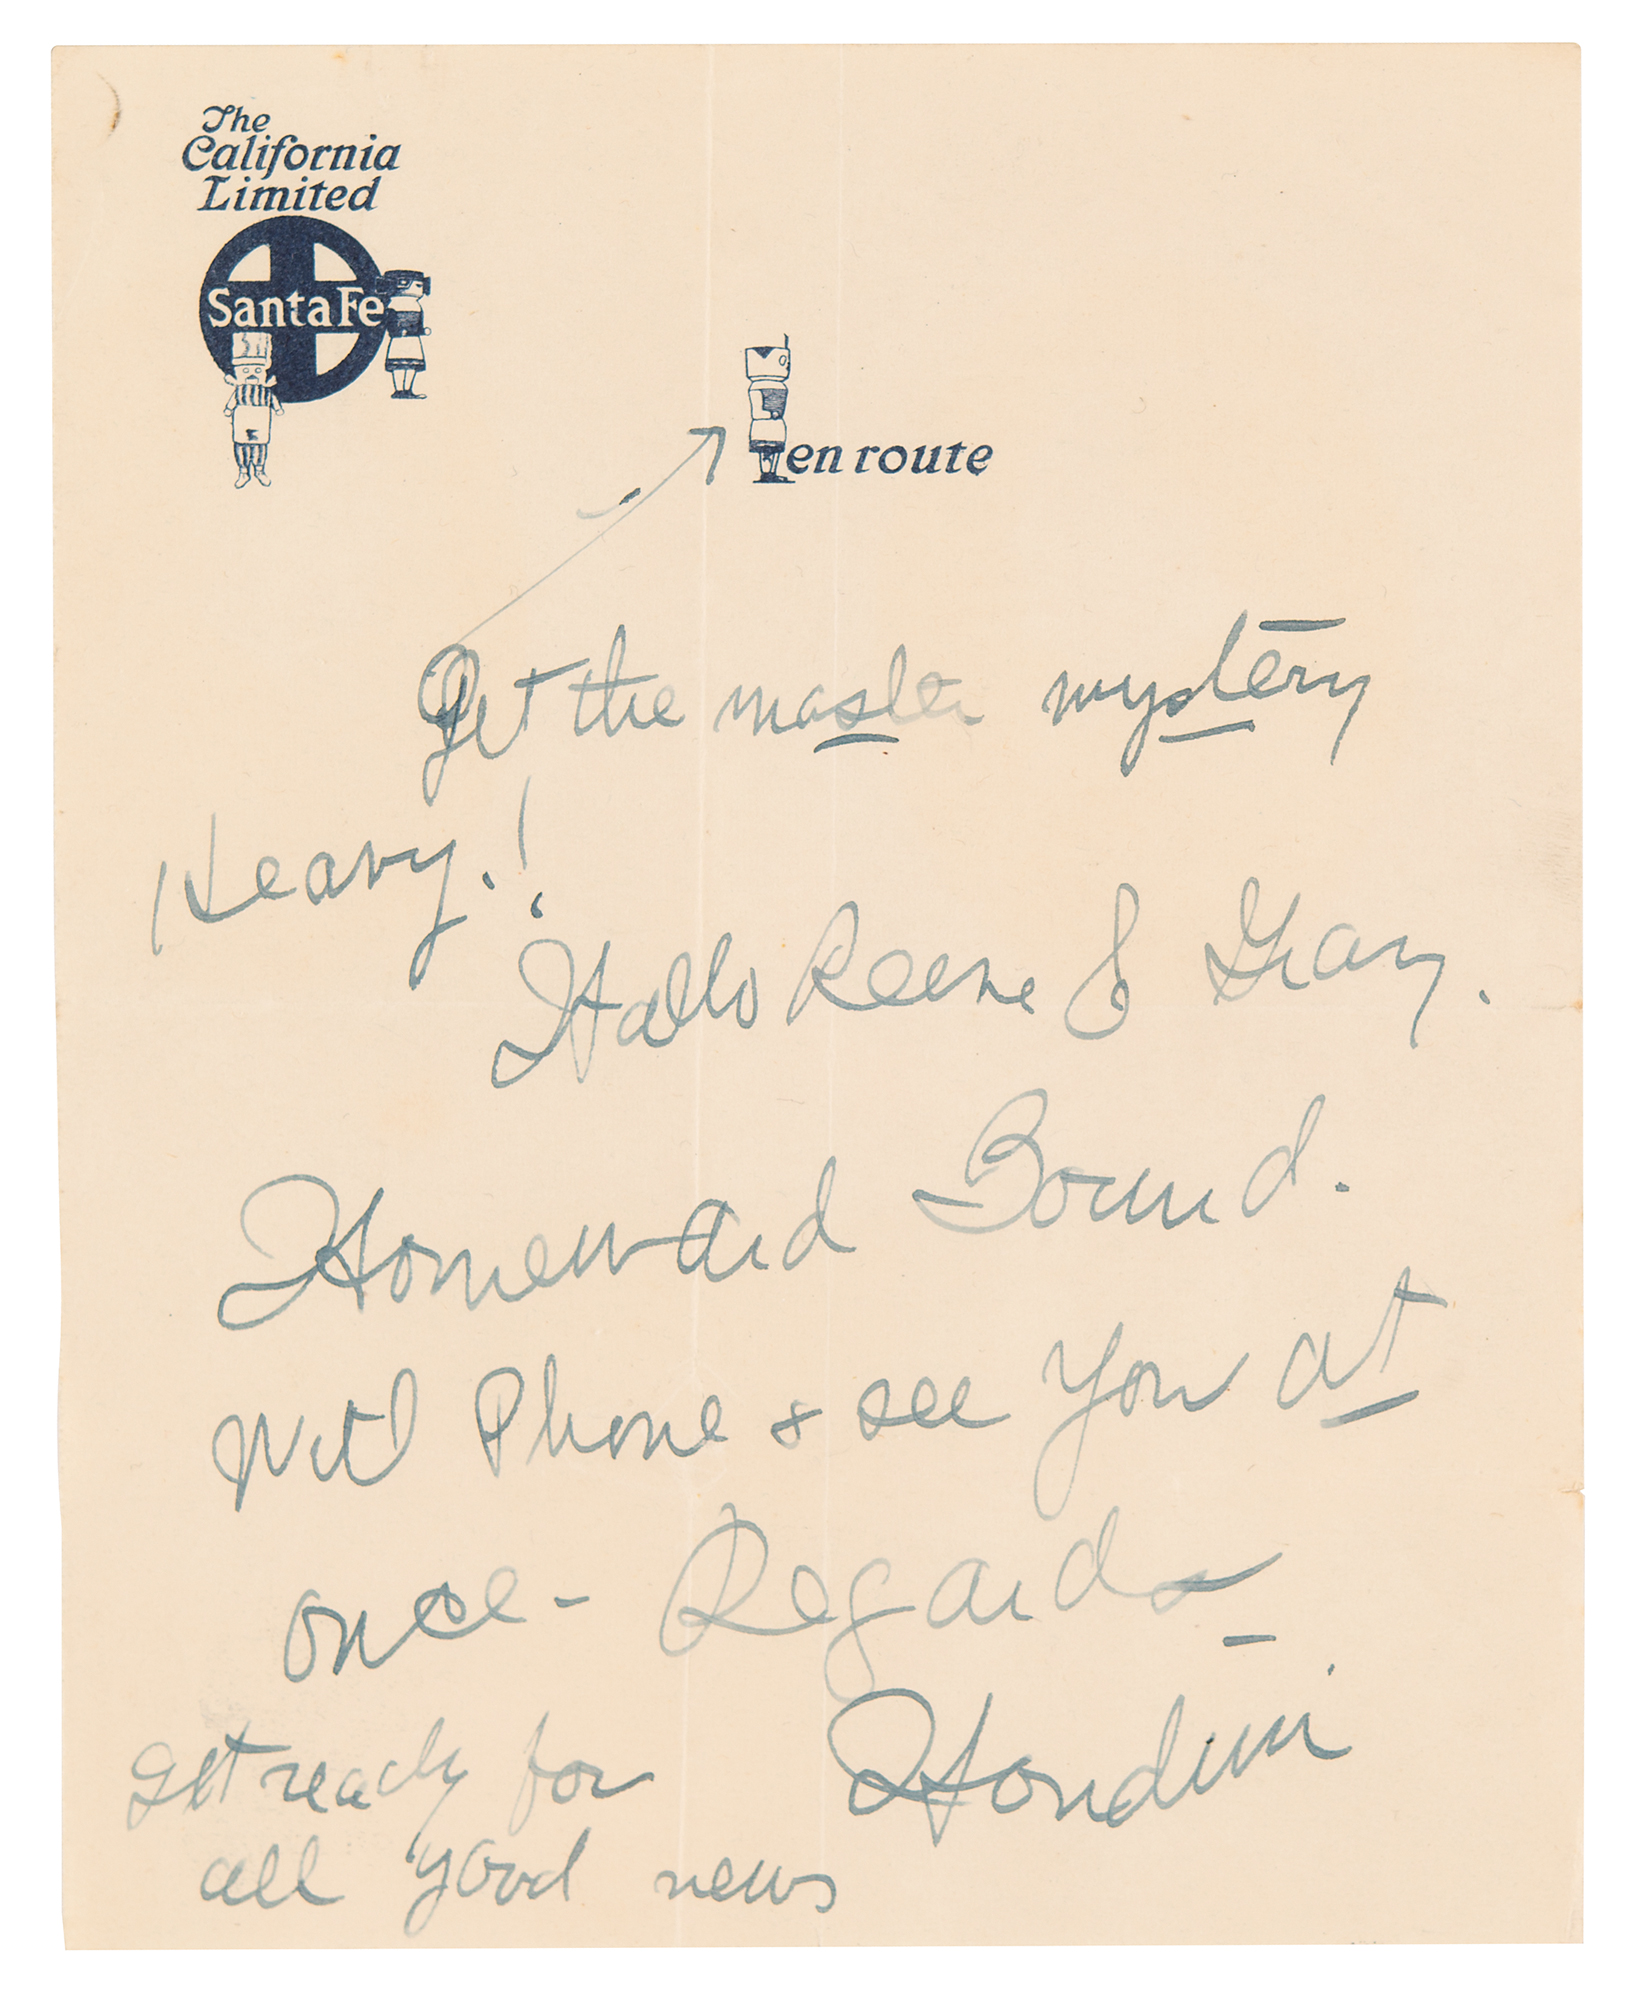 The
California
Limited
Santa Fe
en route
Get the master mystery
Heavy.!
Hallo Reene & Gray.
Homeward Bound.
Will Phone & see you at
once - Regards
Houdini
Get ready for
all good news